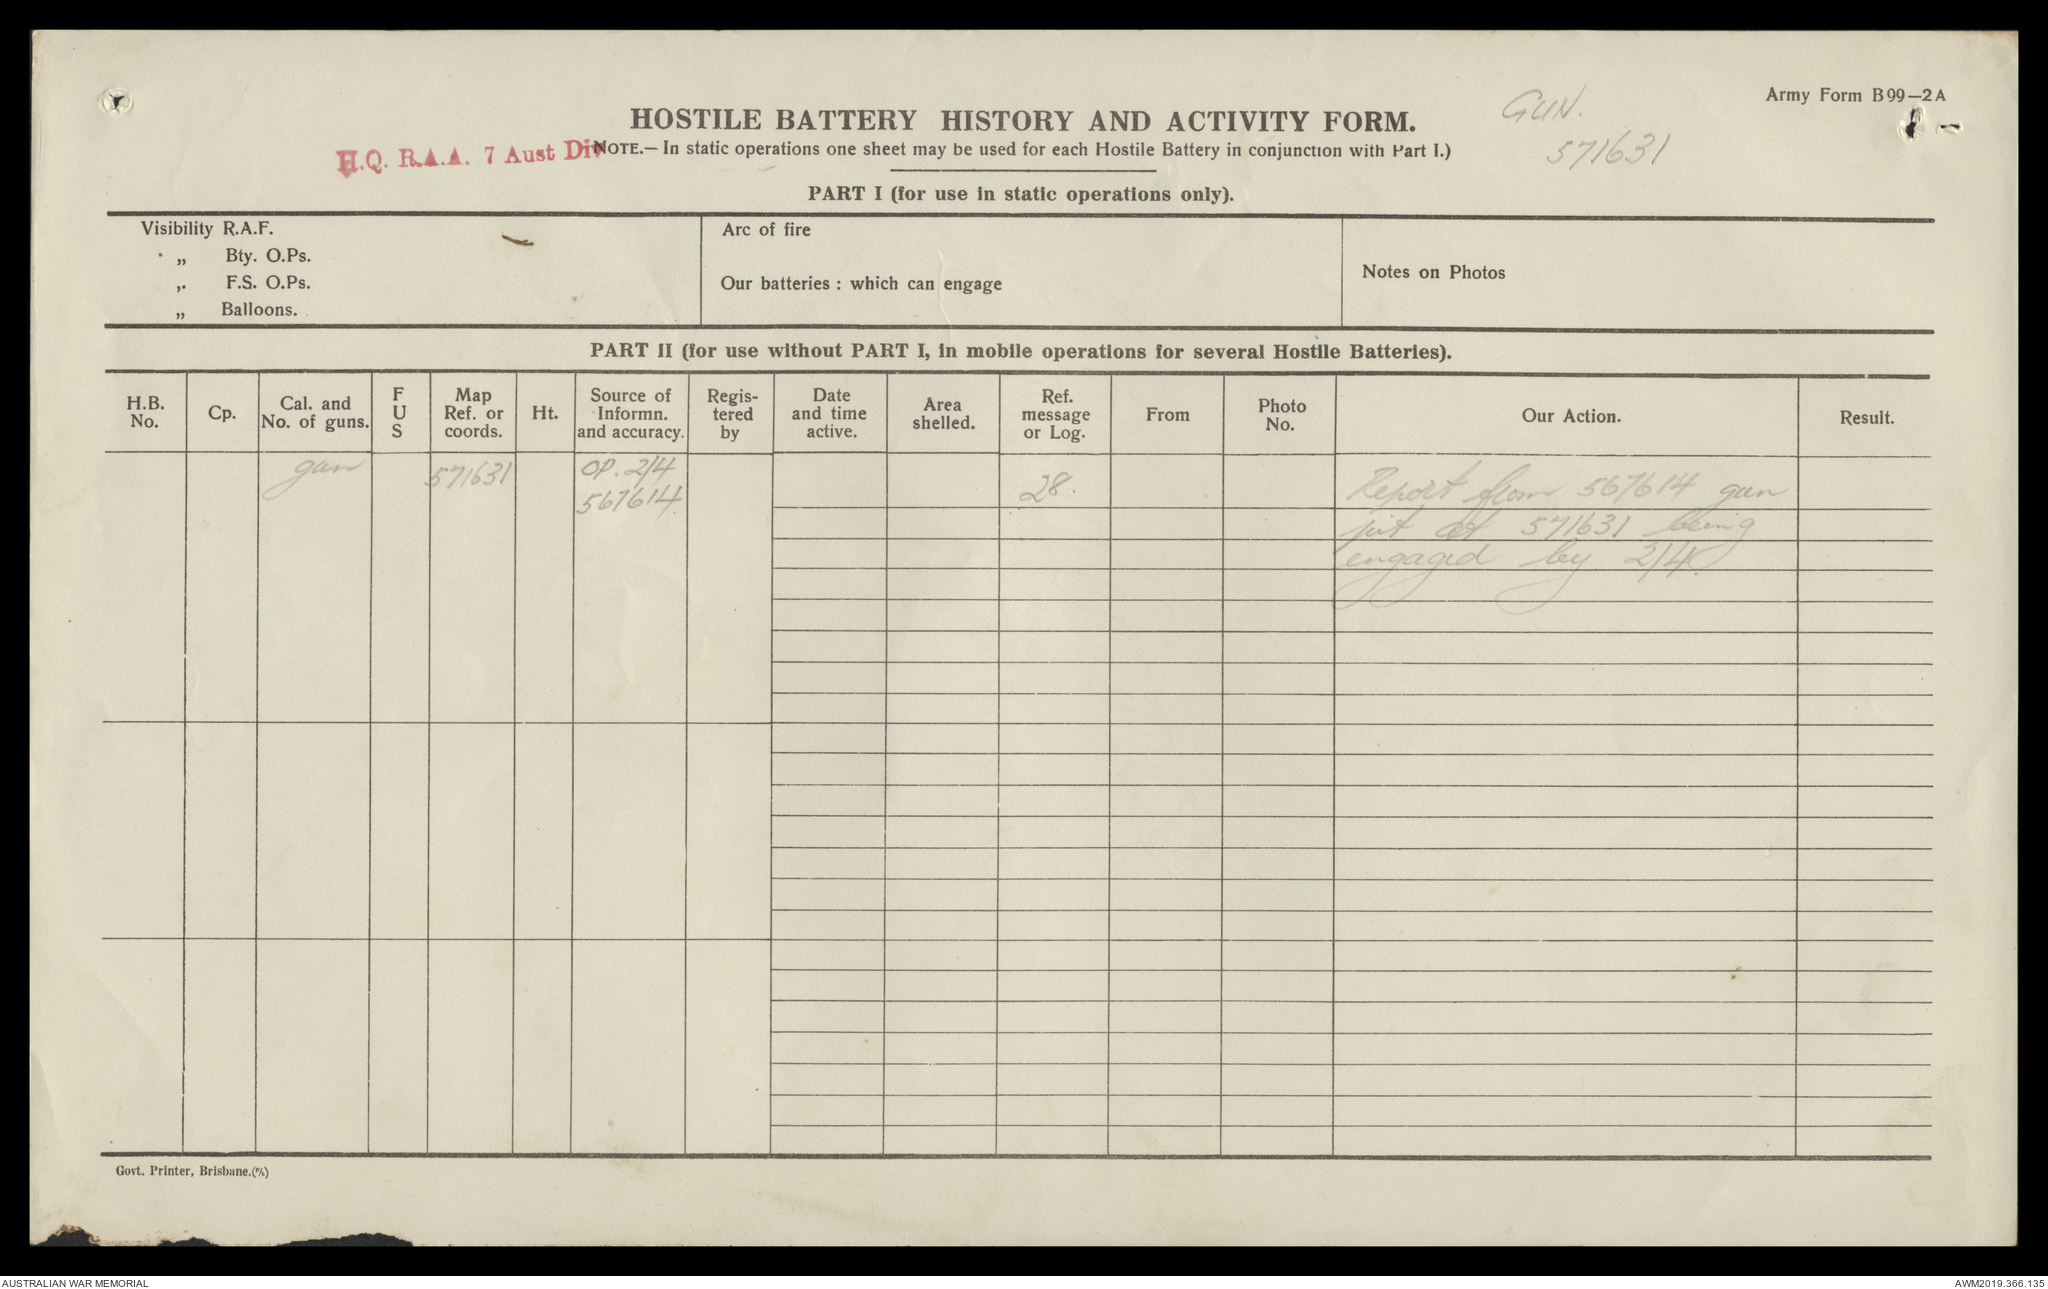 Army Form B99—2A
GUN.
571631
HOSTILE BATTERY HISTORY AND ACTIVITY FORM.
H.Q. R.A.A. 7 Aust Div
NOTE.— In static operations one sheet may be used for each Hostile Battery in conjunction with Part I.)
PART I (for use in static operations only).
Visibility R.A.F.
„ Bty. O.Ps.
„ F.S. O.Ps.
„ Balloons.
Arc of fire
Our batteries : which can engage
Notes on Photos
PART II (for use without PART I, in mobile operations for several Hostile Batteries).
H.B. No.
Cp.
Cal. and No. of guns.
F U S
Map Ref. or coords.
Ht.
Source of Informn. and accuracy.
Regis- tered by
Date and time active.
Area shelled.
Ref. message or Log.
From
Photo No.
Our Action.
Result.
gun
571631
OP. 2/4
567614
28.
Report from 567614 gun
pit at 571631 being
engaged by 2/4.
Govt. Printer, Brisbane.
AUSTRALIAN WAR MEMORIAL
AWM2019.366.135